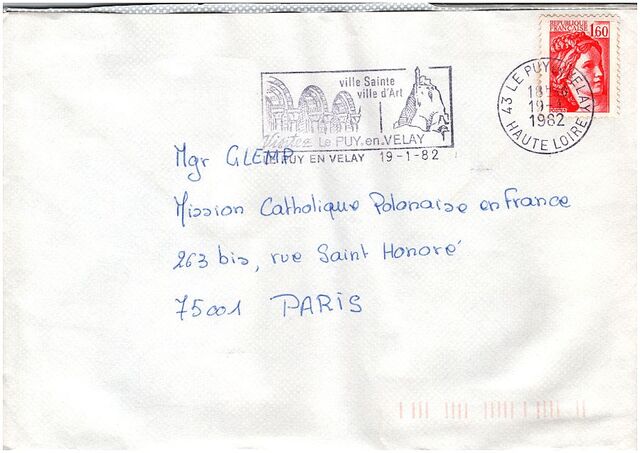 REPUBLIQUE FRANCAISE
1,60
ville Sainte
ville d'Art
Visitez LE PUY.en.VELAY
LE PUY EN VELAY 19-1-82
43 LE PUY EN VELAY
18H
19-1
1982
HAUTE LOIRE
Mgr GLEMP
Mission Catholique Polonaise en France
263 bis, rue Saint Honoré
75001 PARIS